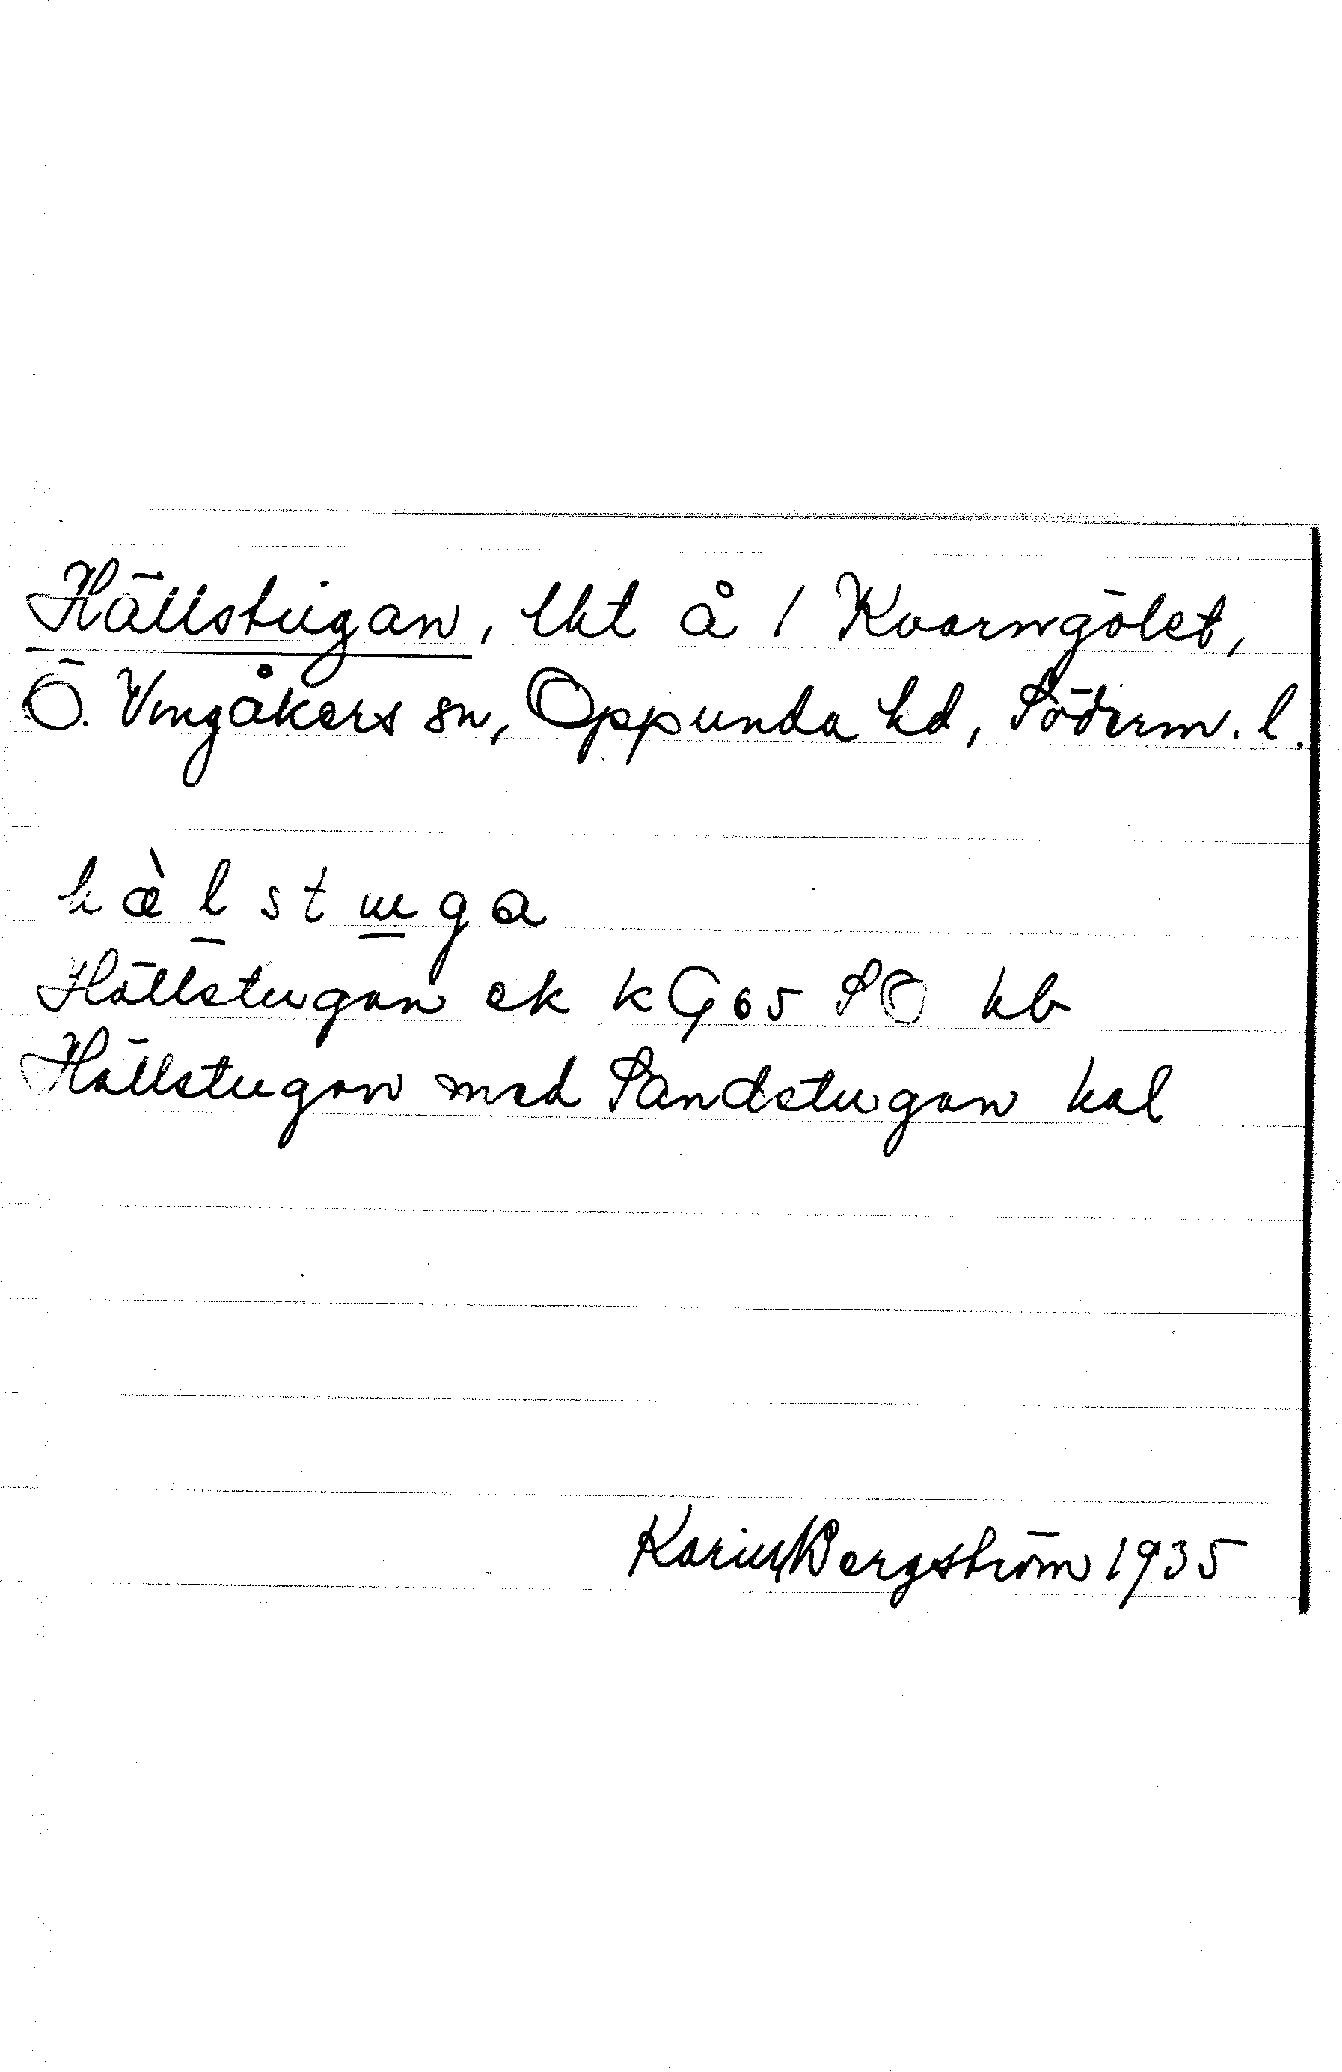 Hällstugan, lht å 1 Kvarngölet,
Ö. Vingåkers sn, Oppunda hd, Söderm. l.
hæ̀l̲stɯ̲ga
Hällstugan ek kG65 SO hb
Hällstugan med Sandstugan hal
Karin Bergström 1935